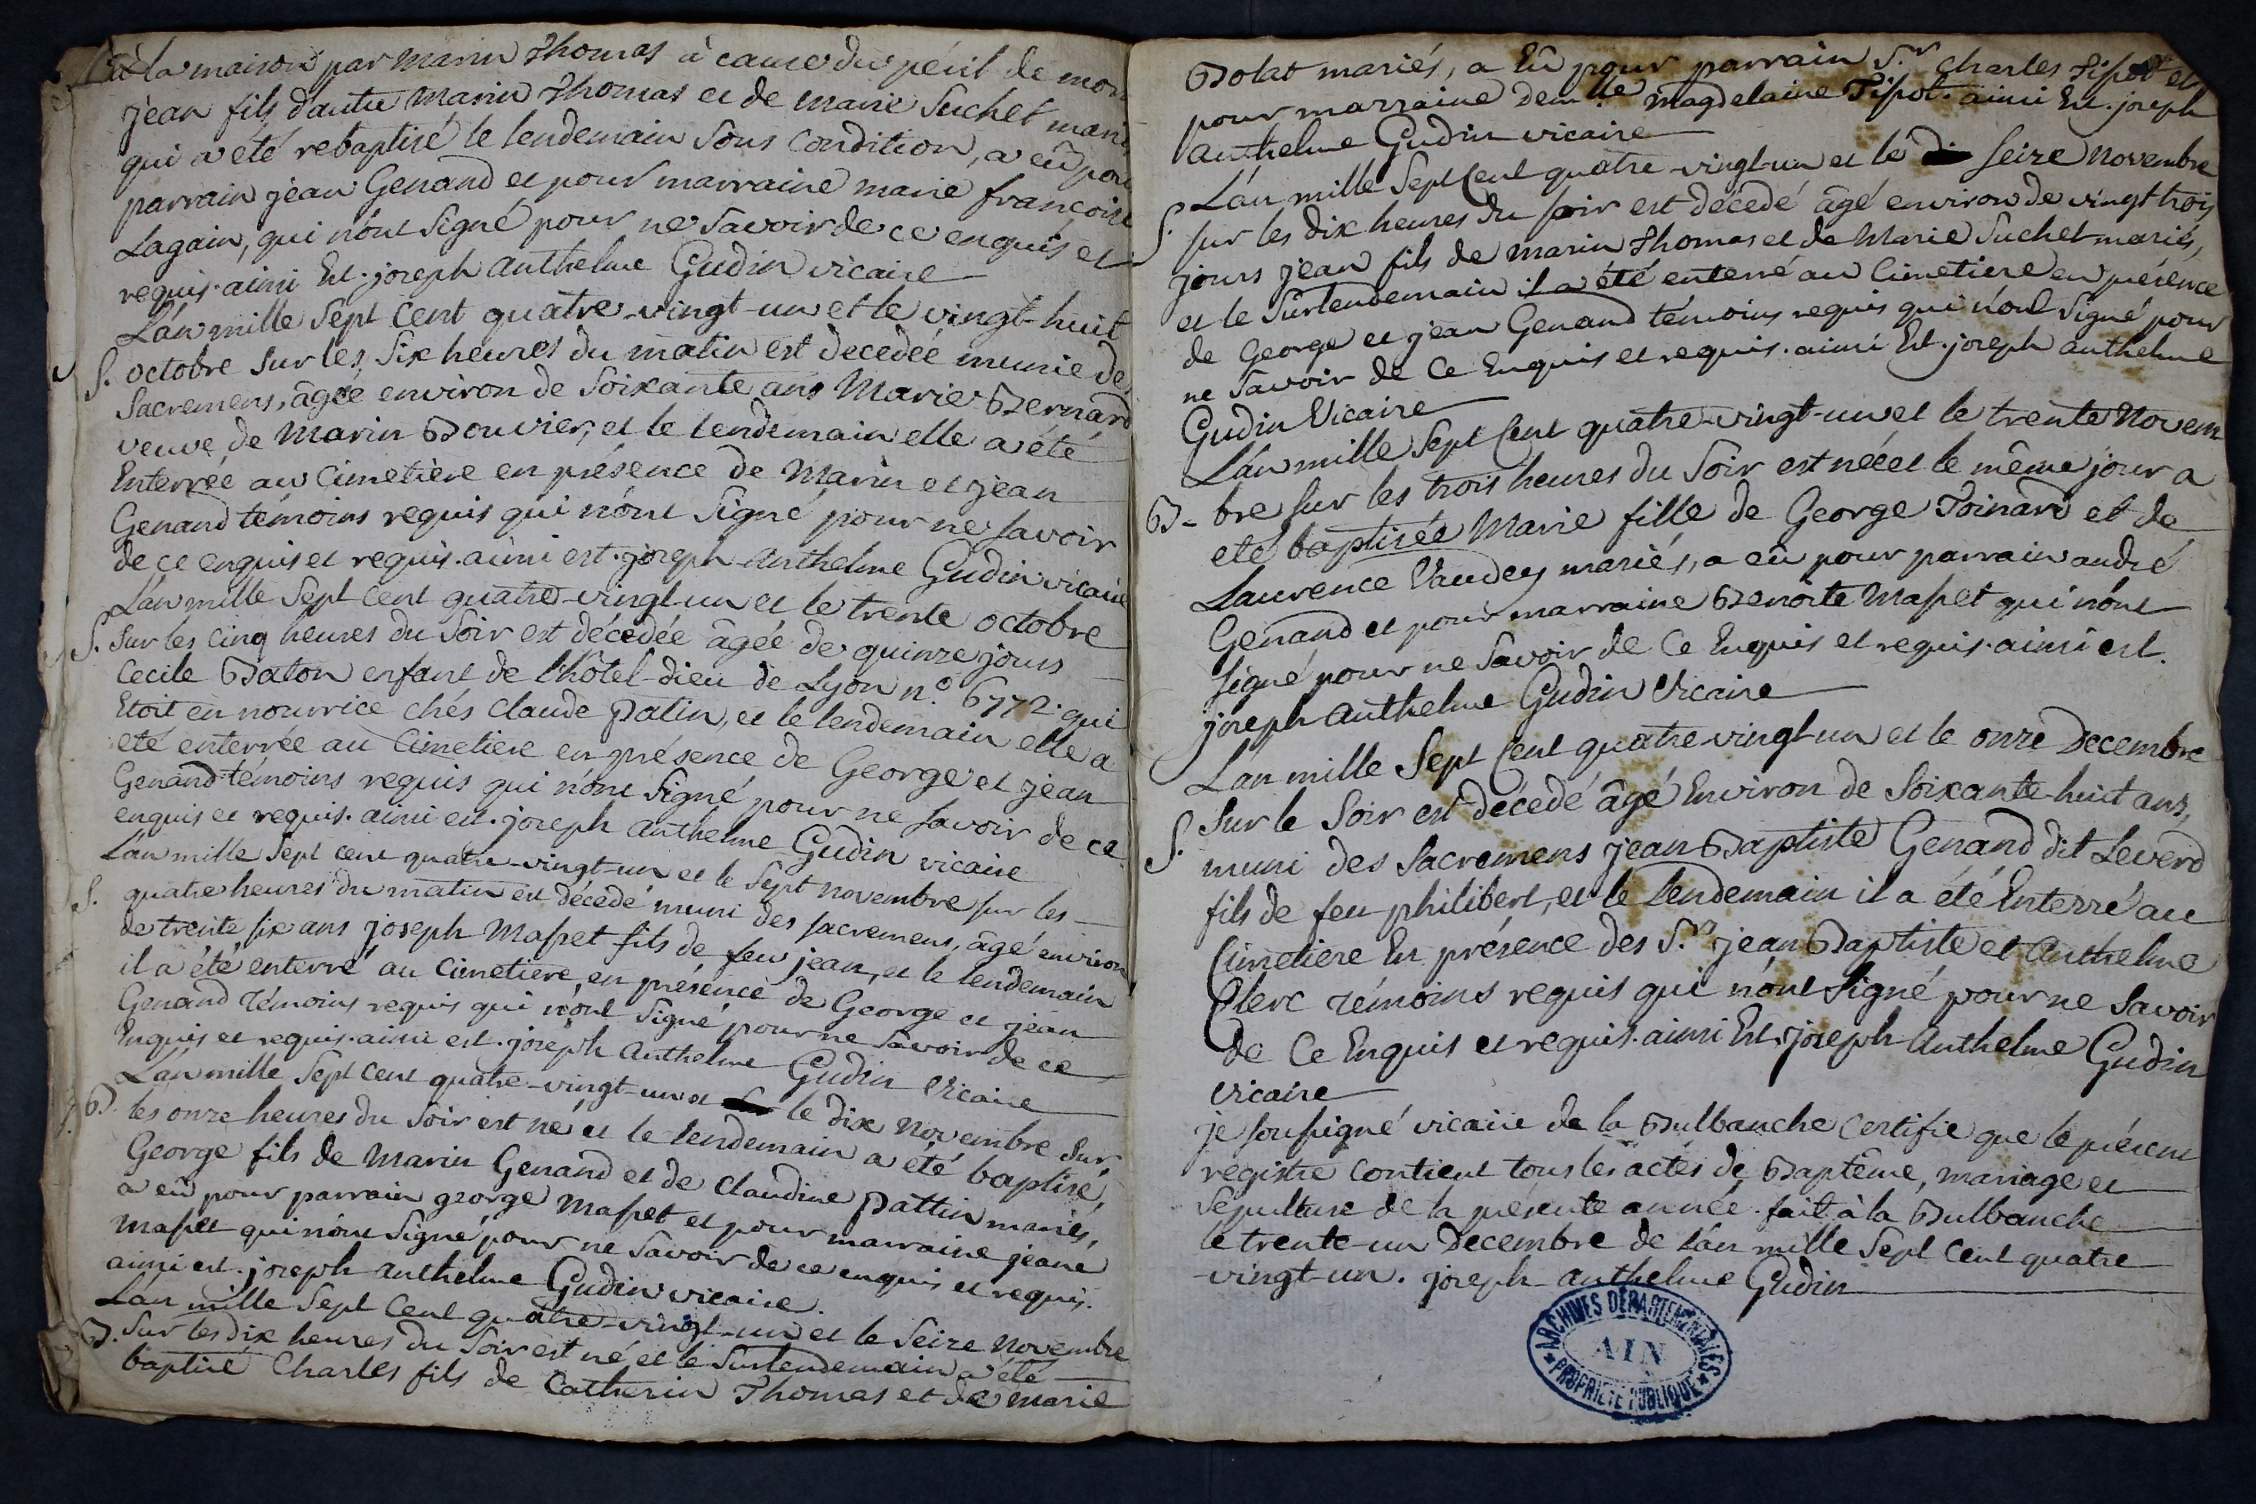 à la maison par Marin Thomas à cause du péril de mort
jean fils d'autre Marin Thomas et de marie Suchet mariés
qui a été rebaptisé le lendemain sous condition, a eû pour
parrain jean Genand et pour marraine marie françoise
Lagain, qui n'ont signé pour ne savoir de ce enquis et
requis. ainsi Est. joseph anthelme Gudin vicaire
L'an mille sept cent quatre-vingt-un et le vingt-huit
S. octobre sur les six heures du matin est decedée munie de
Sacremens, âgée environ de soixante ans Marie Bernard
veuve de Marin Bouvier, et le lendemain elle a été
Enterrée au Cimetière en présence de Marin et jean
Genand témoins requis qui n'ont signé pour ne savoir
de ce enquis et requis. ainsi est. joseph anthelme Gudin vicaire
L'an mille sept cent quatre-vingt-un et le trente octobre
S. sur les cinq heures du soir est décedée âgée de quinze jours
Cecile Baton enfant de l'hôtel-dieu de Lyon n.º 6772. qui
Etoit en nourrice chés claude patin, et le lendemain elle a
eté enterrée au Cimetiere en présence de George et jean
Genand témoins requis qui n'ont signé pour ne savoir de ce
enquis et requis. ainsi est. joseph anthelme Gudin vicaire
L'an mille sept cent quatre-vingt-un et le sept novembre sur les
S. quatre heures du matin est décedé muni des sacremens, âgé environ
de trente six ans joseph Masset fils de feu jean, et le lendemain
il a été enterré au cimetiere, en présence de George et jean
Genand témoins requis qui n'ont signé pour ne savoir de ce
Enquis et requis. ainsi est. joseph anthelme Gudin Vicaire
L'an mille sept cent quatre-vingt-un et le dix Novembre sur
B. les onze heures du soir est né et le lendemain a été baptisé
George fils de Marin Genand et de claudine Pattin mariés,
a eû pour parrain george Masset et pour marraine jeane
Masset qui n'ont signé pour ne savoir de ce enquis et requis.
ainsi est. joseph anthelme Gudin vicaire.
L'an mille sept cent quatre-vingt-un et le seize Novembre
B. sur les dix heures du soir est né et le surlendemain a été
baptisé Charles fils de Catherin Thomas et de marie
Bolat mariés, a Eû pour parrain S.r charles Tipot et
pour marraine dem.lle magdelaine Tipot. ainsi Est. joseph
anthelme Gudin vicaire
L'an mille sept cent quatre-vingt-un et le seize novembre
S. sur les dix heures du soir est décedé âgé environ de vingt trois
jours jean fils de marin Thomas et de Marie Suchet mariés,
et le surlendemain il a été enterré au Cimetiere en présence
de George et jean Genand témoins requis qui n'ont signé pour
ne savoir de ce Enquis et requis. ainsi Est. joseph anthelme
Gudin Vicaire
L'an mille sept cent quatre-vingt-un et le trente Novem
B- bre sur les trois heures du soir est née et le même jour a
eté baptisée Marie fille de George Poinard et de
Laurence Vaudey mariés, a eû pour parrain andré
Genand et pour marraine Benoite Masset qui n'ont
signé pour ne savoir de ce Enquis et requis. ainsi est.
joseph anthelme Gudin Vicaire
L'an mille sept cent quatre-vingt-un et le onze Decembre
S. sur le soir est décedé âgé Environ de soixante-huit ans,
muni des sacremens jean Baptiste Genand dit Leverd
fils de feu philibert, et le lendemain il a été Enterré au
Cimetiere En présence des S.rs jean Baptiste et Anthelme
Clerc témoins requis qui n'ont signé pour ne savoir
de ce Enquis et requis. ainsi Est. joseph Anthelme Gudin
vicaire
je soussigné vicaire de la Bulbanche certifie que le présent
registre contient tous les actes de Baptême, mariage et
sepulture de la présente année. fait à la Bulbanche
le trente-un Decembre de l'an mille sept cent quatre
-vingt-un. joseph anthelme Gudin
ARCHIVES DÉPARTEMENTALES
AIN
PROPRIÉTÉ PUBLIQUE